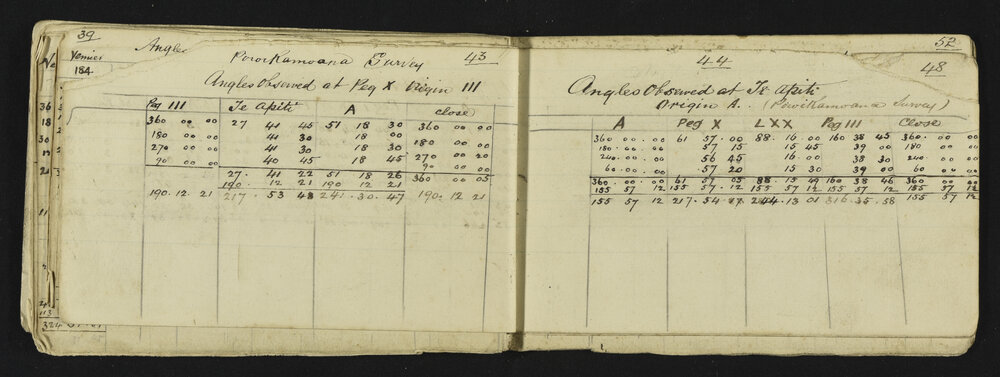 39
Angles
Vernier
184
Powikamoana Survey 43
Angles Observed at Peg X Origin III
Peg III Te Apiti A Close
360 00 00 27 41 45 51 18 30 360 00 00
180 00 00 41 30 18 00 180 00 00
270 00 00 41 30 18 30 270 00 20
90 00 00 40 45 18 45 90 00 00
27. 41 22 51 18 26 360 00 05
190. 12 21 190 12 21
190. 12. 21 217 53 43 241. 30. 47 190. 12 21
36
18
30
21
11
52
44
48
Angles Observed at Te Apiti
Origin A. (Powikamoana Survey)
A Peg X LXX Peg III Close
360 00 00 61 57. 00 88. 16 00 160 38 45 360. 00 00
180. 00. 00 57 15 15 45 39 00 180 00 00
240. 00. 00 56 45 16 00 38 30 240. 00 00
60. 00. 00 57 20 15 30 39 00 60 00 00
360. 00 00 61 57 05 88. 15 49 160 38 46 360 00 00
155 57 12 155 57. 12 155 57 12 155 57 12 155 57 12
155 57 12 217. 54 17 244. 13 01 316 35. 58 155 57 12